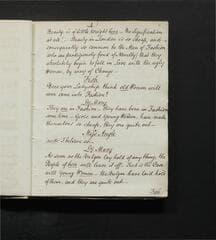 4
Beauty is of little weight here – No Signification
at all. – Beauty in London is so cheap, and
consequently so common to the Men of Fashion
who are prodigiously fond of Novelty) that they
absolutely begin to fall in Love with the ugly
Women, by way of Change –
Faith
Does your Ladyship think old Women will
ever come into Fashion?
Ly Mary
They are in Fashion. They have been in Fashion
some time – Girls and Young Women have made
themselves so cheap, they are quite out –
Miss
and I believe so.
Ly Mary
As soon as the Vulgar lay hold of any thing, the
People of Ton will leave it off. And so the Case
with young Women – the Vulgar have laid hold
of them, and they are quite out –